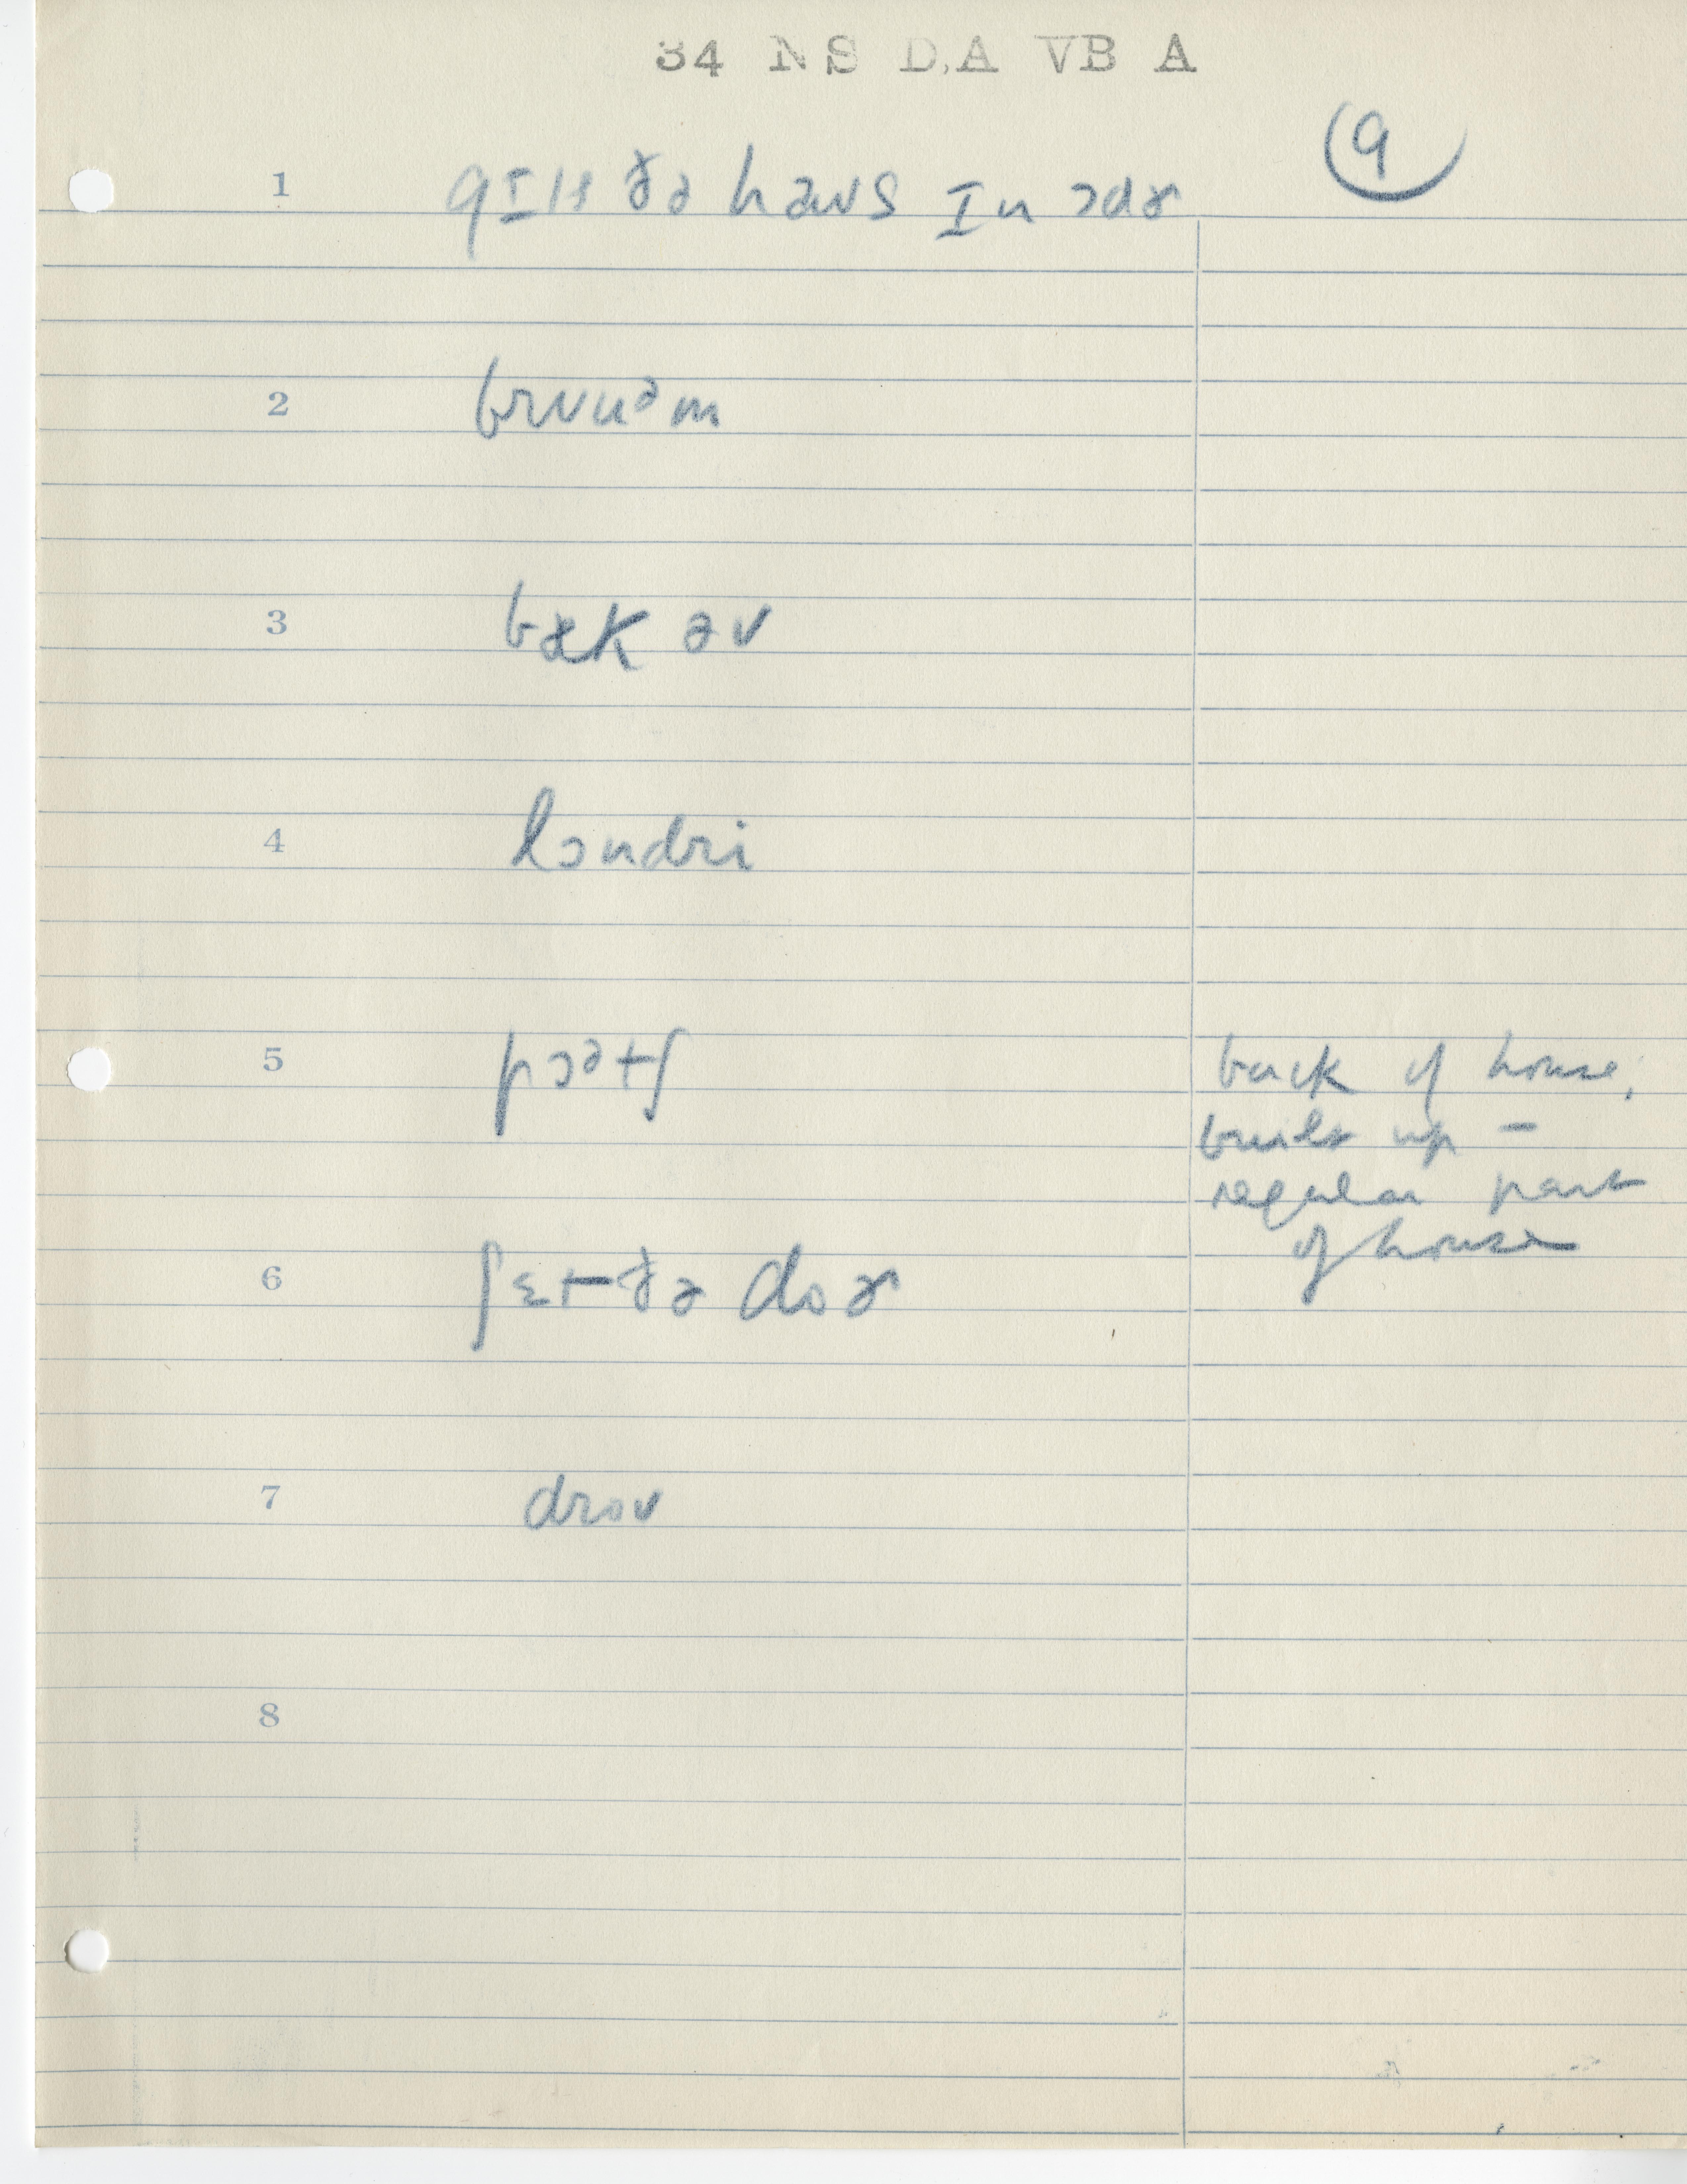 34 NS D,A VB A
9
1 gɪts ðə haʊs ɪn ɔdɚ
2 brʊuᵊm
3 bæk əv
4 lɔndri
5 pɔᵊtʃ
back of house,
built up –
regular part
of house
6 ʃɛt ðə doɚ
7 droʊ
8